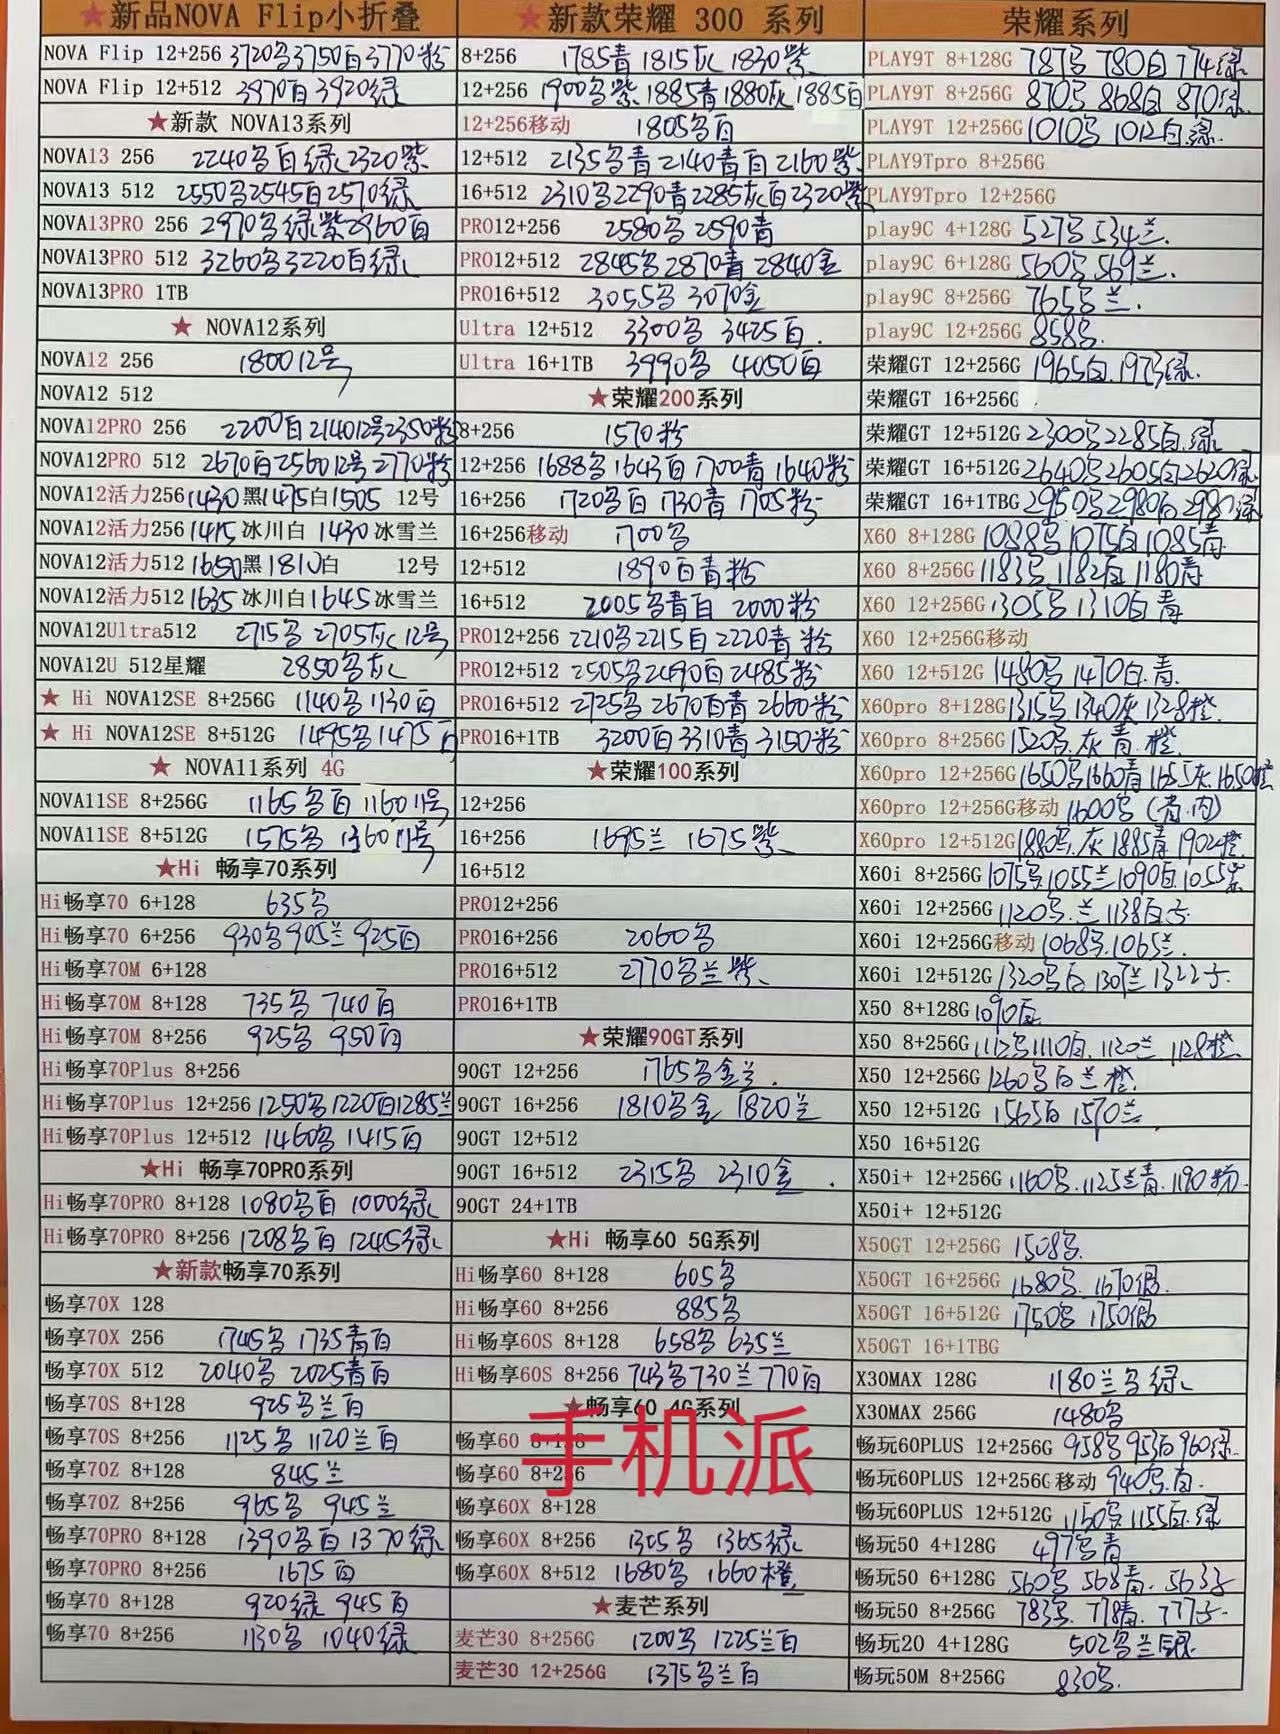 ★新品NOVA Flip小折叠
NOVA Flip 12+256 3720名3750百3770粉
NOVA Flip 12+512 3970百3920绿
★新款 NOVA13系列
NOVA13 256 2240名百绿2320紫
NOVA13 512 2550名2545百2570绿
NOVA13PRO 256 2970名绿紫2960百
NOVA13PRO 512 3260名3220百绿
NOVA13PRO 1TB
★ NOVA12系列
NOVA12 256 1800 12号
NOVA12 512
NOVA12PRO 256 2200百2140 12号2350粉
NOVA12PRO 512 2670百2560 12号2770粉
NOVA12活力256 1430黑1475白1505 12号
NOVA12活力256 1415冰川白 1430冰雪兰
NOVA12活力512 1650黑1810白 12号
NOVA12活力512 1635冰川白1645冰雪兰
NOVA12Ultra512 2715名 2705灰 12号
NOVA12U 512星耀 2850名灰
★ Hi NOVA12SE 8+256G 1140名1130百
★ Hi NOVA12SE 8+512G 1495名1475百
★ NOVA11系列 4G
NOVA11SE 8+256G 1165名百 1160 11号
NOVA11SE 8+512G 1575名 1360 11号
★Hi 畅享70系列
Hi畅享70 6+128 635名
Hi畅享70 6+256 930名905兰925百
Hi畅享70M 6+128
Hi畅享70M 8+128 735名 740百
Hi畅享70M 8+256 925名 950百
Hi畅享70Plus 8+256
Hi畅享70Plus 12+256 1250名1220百1285兰
Hi畅享70Plus 12+512 1460名1415百
★Hi 畅享70PRO系列
Hi畅享70PRO 8+128 1080名百 1000绿
Hi畅享70PRO 8+256 1208名百 1245绿
★新款畅享70系列
畅享70X 128
畅享70X 256 1745名 1735青百
畅享70X 512 2040名 2025青百
畅享70S 8+128 925名兰百
畅享70S 8+256 1125名 1120兰百
畅享70Z 8+128 845兰
畅享70Z 8+256 965名 945兰
畅享70PRO 8+128 1390名百 1370绿
畅享70PRO 8+256 1675百
畅享70 8+128 920绿 945百
畅享70 8+256 1130名 1040绿
★新款荣耀 300 系列
8+256 1785青 1815灰 1830紫
12+256 1900名紫1885青1880灰1885百
12+256移动 1805名百
12+512 2135名青2140青百2160紫
16+512 2310名2290青2285灰百2320紫
PRO12+256 2580名 2590青
PRO12+512 2845名2870青2840金
PRO16+512 3055名 3070金
Ultra 12+512 3300名 3425百
Ultra 16+1TB 3990名 4050百
★荣耀200系列
8+256 1570粉
12+256 1688名1643百1700青1640粉
16+256 1720名百 1730青 1705粉
16+256移动 1700名
12+512 1890百青粉
16+512 2005名青百 2000粉
PRO12+256 2210名2215百2220青 粉
PRO12+512 2505名2490百2485粉
PRO16+512 2725名2670百青2660粉
PRO16+1TB 3200百3310青3150粉
★荣耀100系列
12+256
16+256 1695兰 1675紫
16+512
PRO12+256
PRO16+256 2060名
PRO16+512 2770名兰紫
PRO16+1TB
★荣耀90GT系列
90GT 12+256 1765名金兰
90GT 16+256 1810名金 1820兰
90GT 12+512
90GT 16+512 2315名 2310金
90GT 24+1TB
★Hi 畅享60 5G系列
Hi畅享60 8+128 605名
Hi畅享60 8+256 885名
Hi畅享60S 8+128 658名 635兰
Hi畅享60S 8+256 743名730兰770百
★畅享60 4G系列
畅享60 8+128
畅享60 8+256
畅享60X 8+128
畅享60X 8+256 1305名 1365绿
畅享60X 8+512 1680名 1660橙
★麦芒系列
麦芒30 8+256G 1200名 1225兰百
麦芒30 12+256G 1375名兰百
手机派
荣耀系列
PLAY9T 8+128G 787名 780白 774绿
PLAY9T 8+256G 870名 868白 870绿
PLAY9T 12+256G 1010名 1012白.绿
PLAY9Tpro 8+256G
PLAY9Tpro 12+256G
play9C 4+128G 527名534兰
play9C 6+128G 560名569兰
play9C 8+256G 765名兰
play9C 12+256G 858名
荣耀GT 12+256G 1965白.1973绿
荣耀GT 16+256G
荣耀GT 12+512G 2300名2285白.绿
荣耀GT 16+512G 2640名2605白2620绿
荣耀GT 16+1TBG 2950名2980白2980绿
X60 8+128G 1088名1075白1085青
X60 8+256G 1183名1182白1180青
X60 12+256G 1305名1310白青
X60 12+256G移动
X60 12+512G 1480名1470白.青
X60pro 8+128G 1315名1340灰1328橙
X60pro 8+256G 1520名.灰 青.橙
X60pro 12+256G 1650名1660青1655灰1650橙
X60pro 12+256G移动 1600名
X60pro 12+512G 1880名.灰1885青1902橙
X60i 8+256G 1075名1055兰1090白1055紫
X60i 12+256G 1120名.兰1138白子
X60i 12+256G移动 1068名.1065兰
X60i 12+512G 1320名白1307兰1322子
X50 8+128G 1090白
X50 8+256G 1112名1110白.1120兰 1128橙
X50 12+256G 1260名白兰橙
X50 12+512G 1565白1570兰
X50 16+512G
X50i+ 12+256G 1160名.1125兰青.1190粉
X50i+ 12+512G
X50GT 12+256G 1508名
X50GT 16+256G 1680名.1670银
X50GT 16+512G 1750名 1750银
X50GT 16+1TBG
X30MAX 128G 1180兰名绿
X30MAX 256G 1480名
畅玩60PLUS 12+256G 958名953白960绿
畅玩60PLUS 12+256G 移动 940名.白
畅玩60PLUS 12+512G 1150名1155白.绿
畅玩50 4+128G 497名青
畅玩50 6+128G 560名568青.563子
畅玩50 8+256G 783名.778青.777子
畅玩20 4+128G 502名兰银
畅玩50M 8+256G 830名